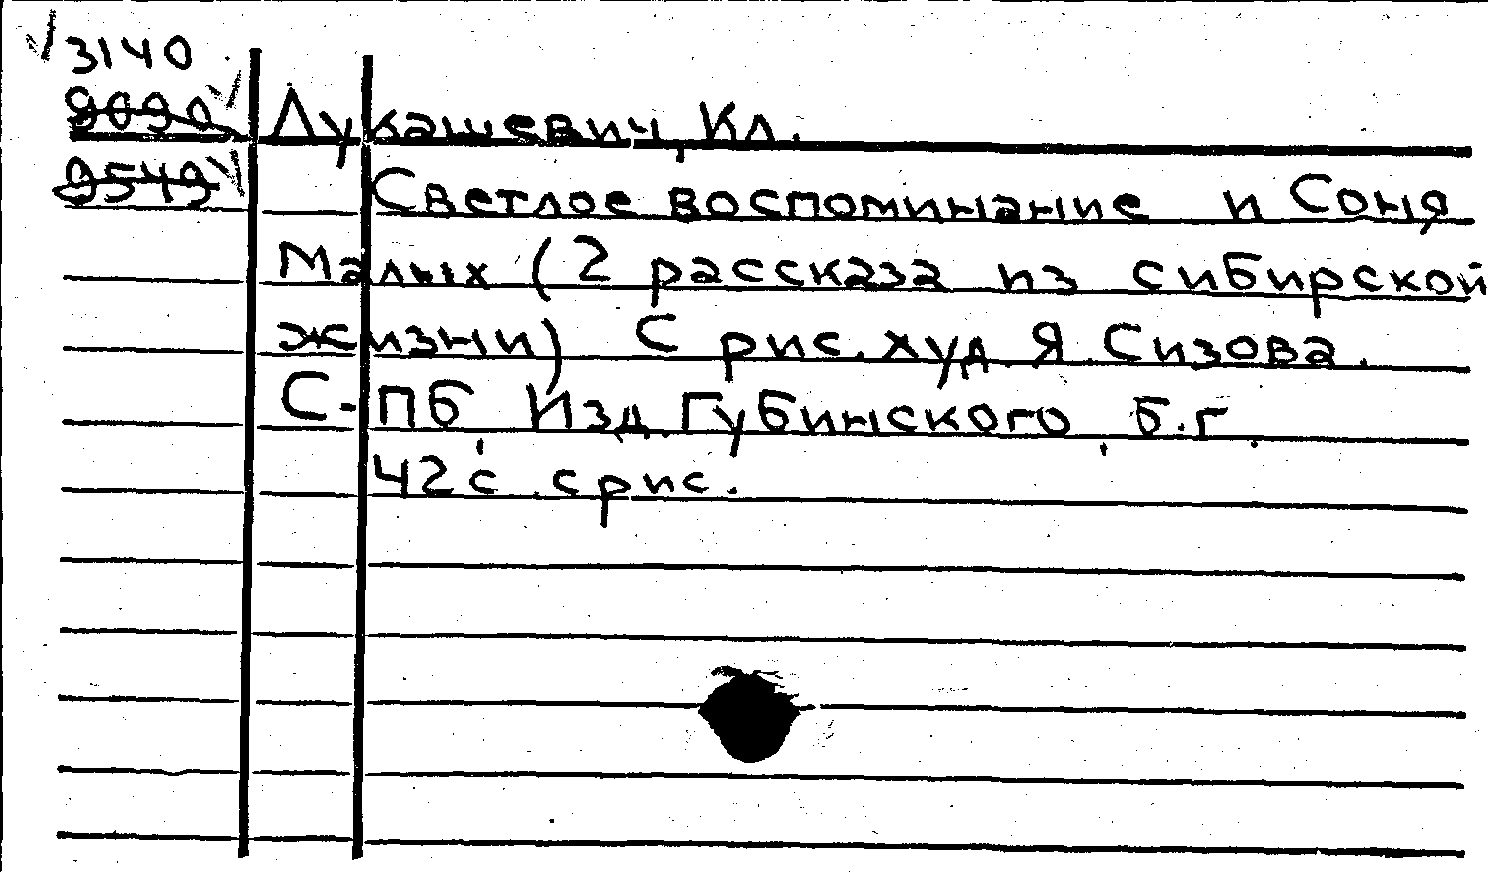 3140
9090
Лукашевич, Кл.
9549
Светлое воспоминание и Соня
Малых (2 рассказа из сибирской
жизни) С рис. худ. Я. Сизова.
С-Пб, Изд. Губинского, б.г.
42 с. с рис.